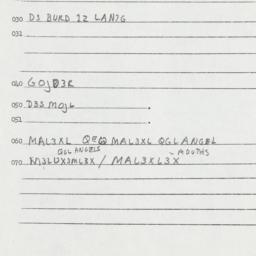 030 DS BURD 12 LAN7G
031
040 GOJD3R
050 D3S MOJL .
051 .
060 MAL3XL QEQ MAL3XL QGL ANGEL
QGL ANGELS - MOUTHS
070 M3LUX3ML3X / MAL3XL3X